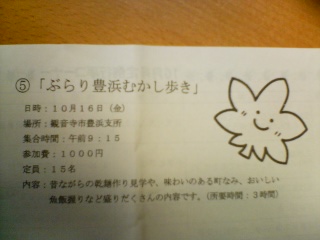 ⑤「ぶらり豊浜むかし歩き」
日時：１０月１６日（金）
場所：観音寺市豊浜支所
集合時間：午前９：１５
参加費：１０００円
定員：１５名
内容：昔ながらの乾麺作り見学や、味わいのある町なみ、おいしい
魚飯握りなど盛りだくさんの内容です。（所要時間：３時間）